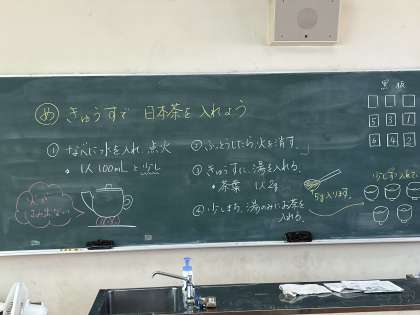 め きゅうすで 日本茶を入れよう
① なべに水を入れ、点火
・1人 100mLと少し
② ふっとうしたら火を消す。
③ きゅうすに湯を入れる。
・茶葉 1人2g
④ 少しまち、湯のみにお茶を
入れる。
火が
はみ出ない
5g入ります。
少しずつ入れて
黒板
5 3 1
6 4 2